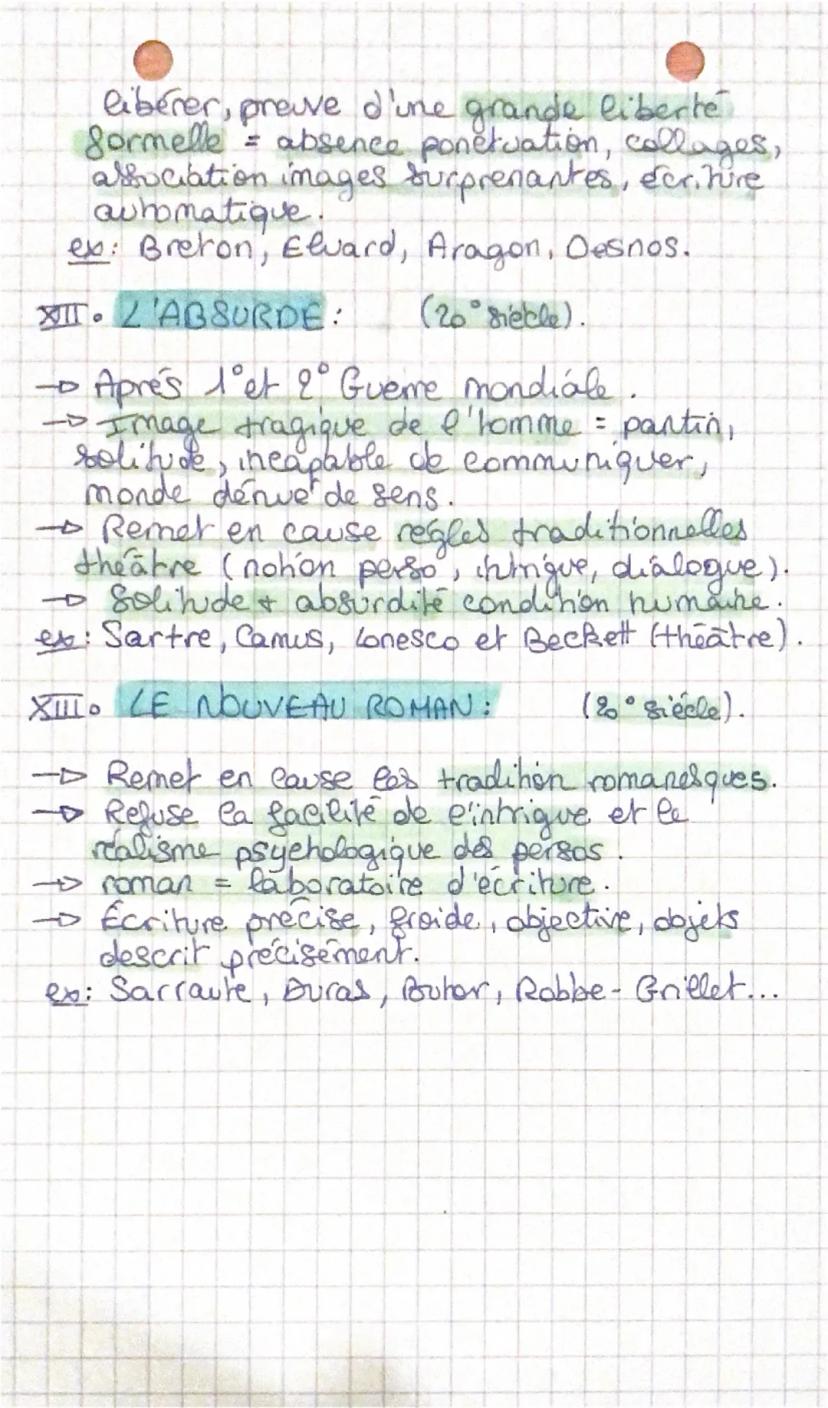 libérer, preuve d'une grande liberté
formelle = absence ponctuation, collages,
association images surprenantes, écriture
automatique.
ex: Breton, Eluard, Aragon, Desnos.
XII. L'ABSURDE : (20° siècle).
→ Après 1° et 2° Guerre mondiale.
→ Image tragique de l'homme = pantin,
solitude, incapable de communiquer,
monde dénué de sens.
→ Remet en cause règles traditionnelles
théâtre (notion perso, intrigue, dialogue).
→ Solitude + absurdité condition humaine.
ex: Sartre, Camus, Ionesco et Beckett (théâtre).
XIII. LE NOUVEAU ROMAN : (20° siècle).
→ Remet en cause les tradition romanesques.
→ Refuse la facilité de l'intrigue et le
réalisme psychologique des persos.
→ roman = laboratoire d'écriture.
→ Écriture précise, froide, objective, objets
descrit précisément.
ex: Sarraute, Duras, Butor, Robbe-Grillet...